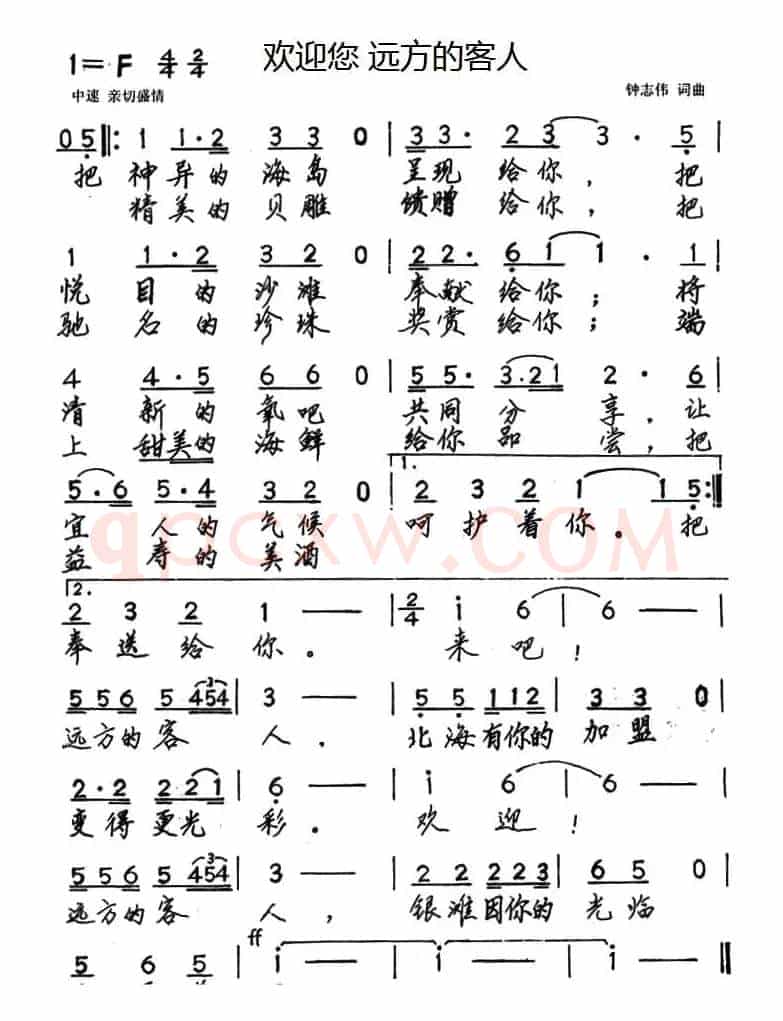 欢迎您 远方的客人
1=F 4/4 2/4
中速 亲切盛情
钟志伟 词曲
0 5 ‖: 1 1·2 3 3 0 | 3 3· 2 3 3· 5
把 神 异 的 海 岛 呈 现 给 你， 把
精 美 的 贝 雕 馈 赠 给 你， 把
1 1·2 3 2 0 | 2 2· 6 1 1· 1
悦 目 的 沙 滩 奉 献 给 你； 将
驰 名 的 珍 珠 奖 赏 给 你； 端
4 4·5 6 6 0 | 5 5· 3.21 2· 6
清 新 的 氧 吧 共 同 分 享， 让
上 甜 美 的 海 鲜 给 你 品 尝， 把
1.
5·6 5·4 3 2 0 | 2 3 2 1 1 5 :‖
宜 人 的 气 候 呵 护 着 你。 把
益 寿 的 美 酒
qpcxw.com
2.
2 3 2 1 — — | 2/4 i 6 | 6 — |
奉 送 给 你。 来 吧！
5 5 6 5 454 | 3 — | 5 5 1 112 | 3 3 0 |
3
远方的客 人， 北海有你的 加 盟
2·2 2 2 1 | 6 — | i 6 | 6 — |
变得更光 彩。 欢 迎！
5 5 6 5 454 | 3 — | 2 2 2 2 3 | 6 5 0 |
3
远方的客 人， 银滩因你的 光 临
ff
5 6 5 | i — | i — | i — | i